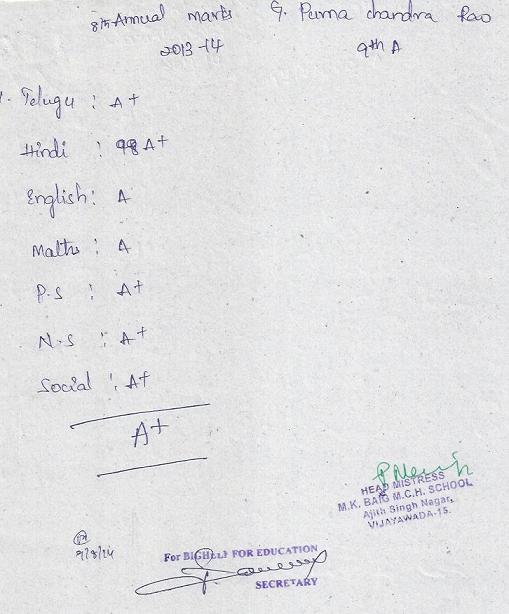 8th Annual marks G. Purna chandra Rao
2013-14 9th A
1. Telugu : A+
Hindi : 98 A+
English : A
Maths : A
P.S : A+
N.S : A+
Social : A+
A+
HEAD MISTRESS
M.K. BAIG M.C.H. SCHOOL
Ajith Singh Nagar,
VIJAYAWADA-15.
For BIGHELP FOR EDUCATION
SECRETARY